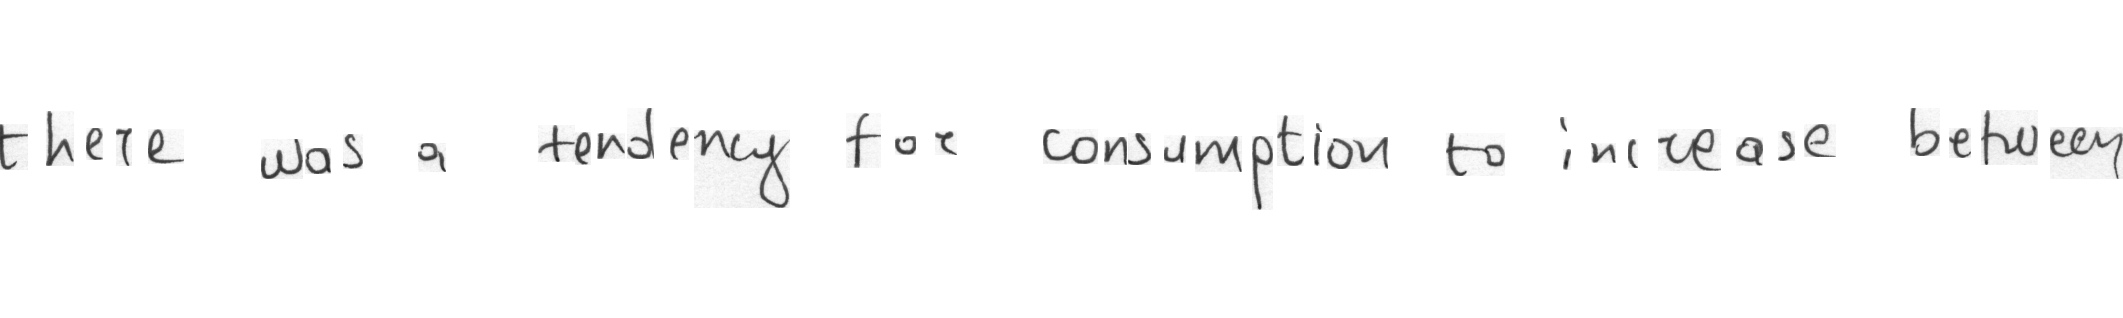 there was a tendency for consumption to increase between